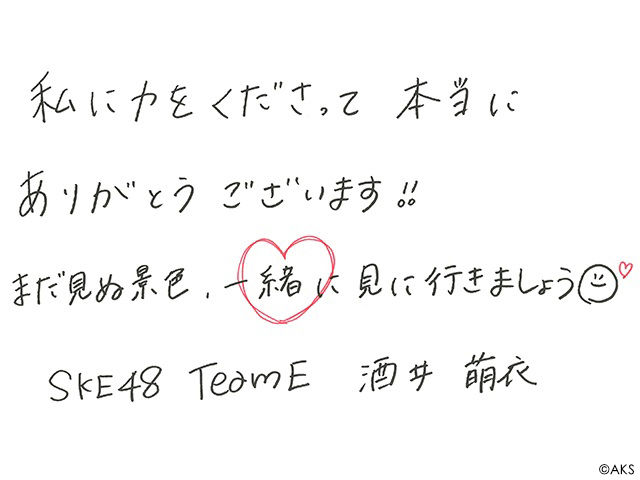 私に力をくださって 本当に
ありがとう ございます!!
まだ見ぬ景色、一緒に見に行きましょう
SKE48 TeamE 酒井 萌衣
©AKS